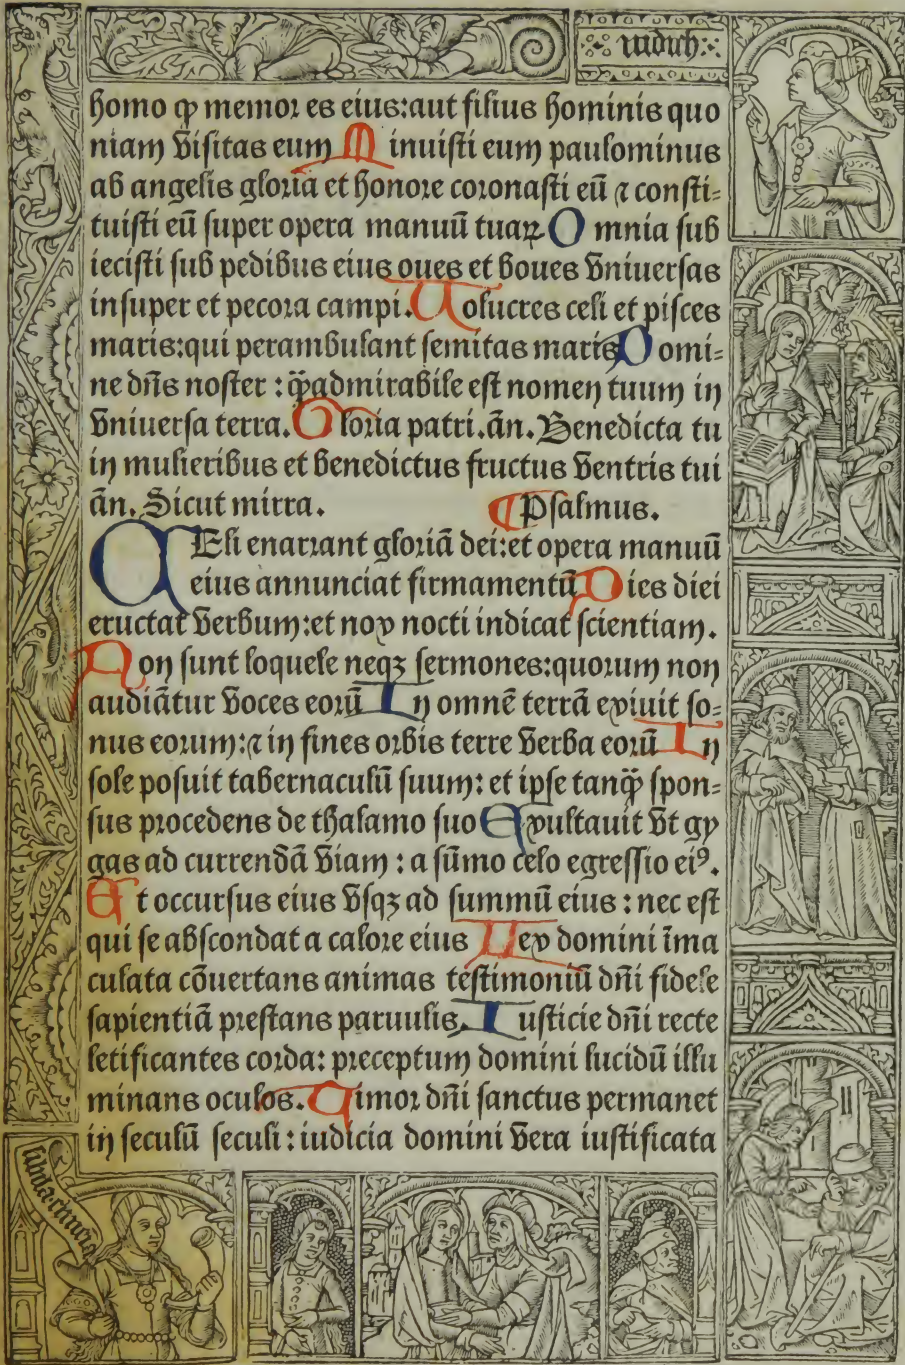 iudith
homo qꝫ memor es eius:aut filius hominis quo
niam visitas eum Minuisti eum paulominus
ab angelis gloria et honore coronasti eū ⁊ consti-
tuisti eū super opera manuū tuaꝝ Omnia sub
iecisti sub pedibus eius oues et boues vniuersas
insuper et pecora campi. Uolucres celi et pisces
maris:qui perambulant semitas maris Domi-
ne dn̄s noster : qꝫ admirabile est nomen tuum in
vniuersa terra. Gloria patri. an̄. Benedicta tu
in mulieribus et benedictus fructus ventris tui
an̄. Sicut mirra. ¶ Psalmus.
CEli enarrant gloriā dei:et opera manuū
eius annunciat firmamentū Dies diei
eructat verbum:et nox nocti indicat scientiam.
Non sunt loquele neqꝫ sermones:quorum non
audiātur voces eorū In omnē terrā exiuit so-
nus eorum:⁊ in fines orbis terre verba eorū In
sole posuit tabernaculū suum: et ipse tanqꝫ spon-
sus procedens de thalamo suo Exultauit vt gy
gas ad currendā viam : a sūmo celo egressio eiꝰ.
Et occursus eius vsqꝫ ad summū eius : nec est
qui se abscondat a calore eius Lex domini īma
culata cōuertans animas testimoniū dn̄i fidele
sapientiā prestans paruulis. Iusticie dn̄i recte
letificantes corda: preceptum domini lucidū illu
minans oculos. Timor dn̄i sanctus permanet
in seculū seculi : iudicia domini vera iustificata